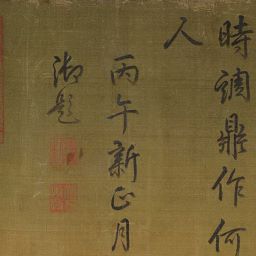 時調鼎作何
人
丙午新正月
御題